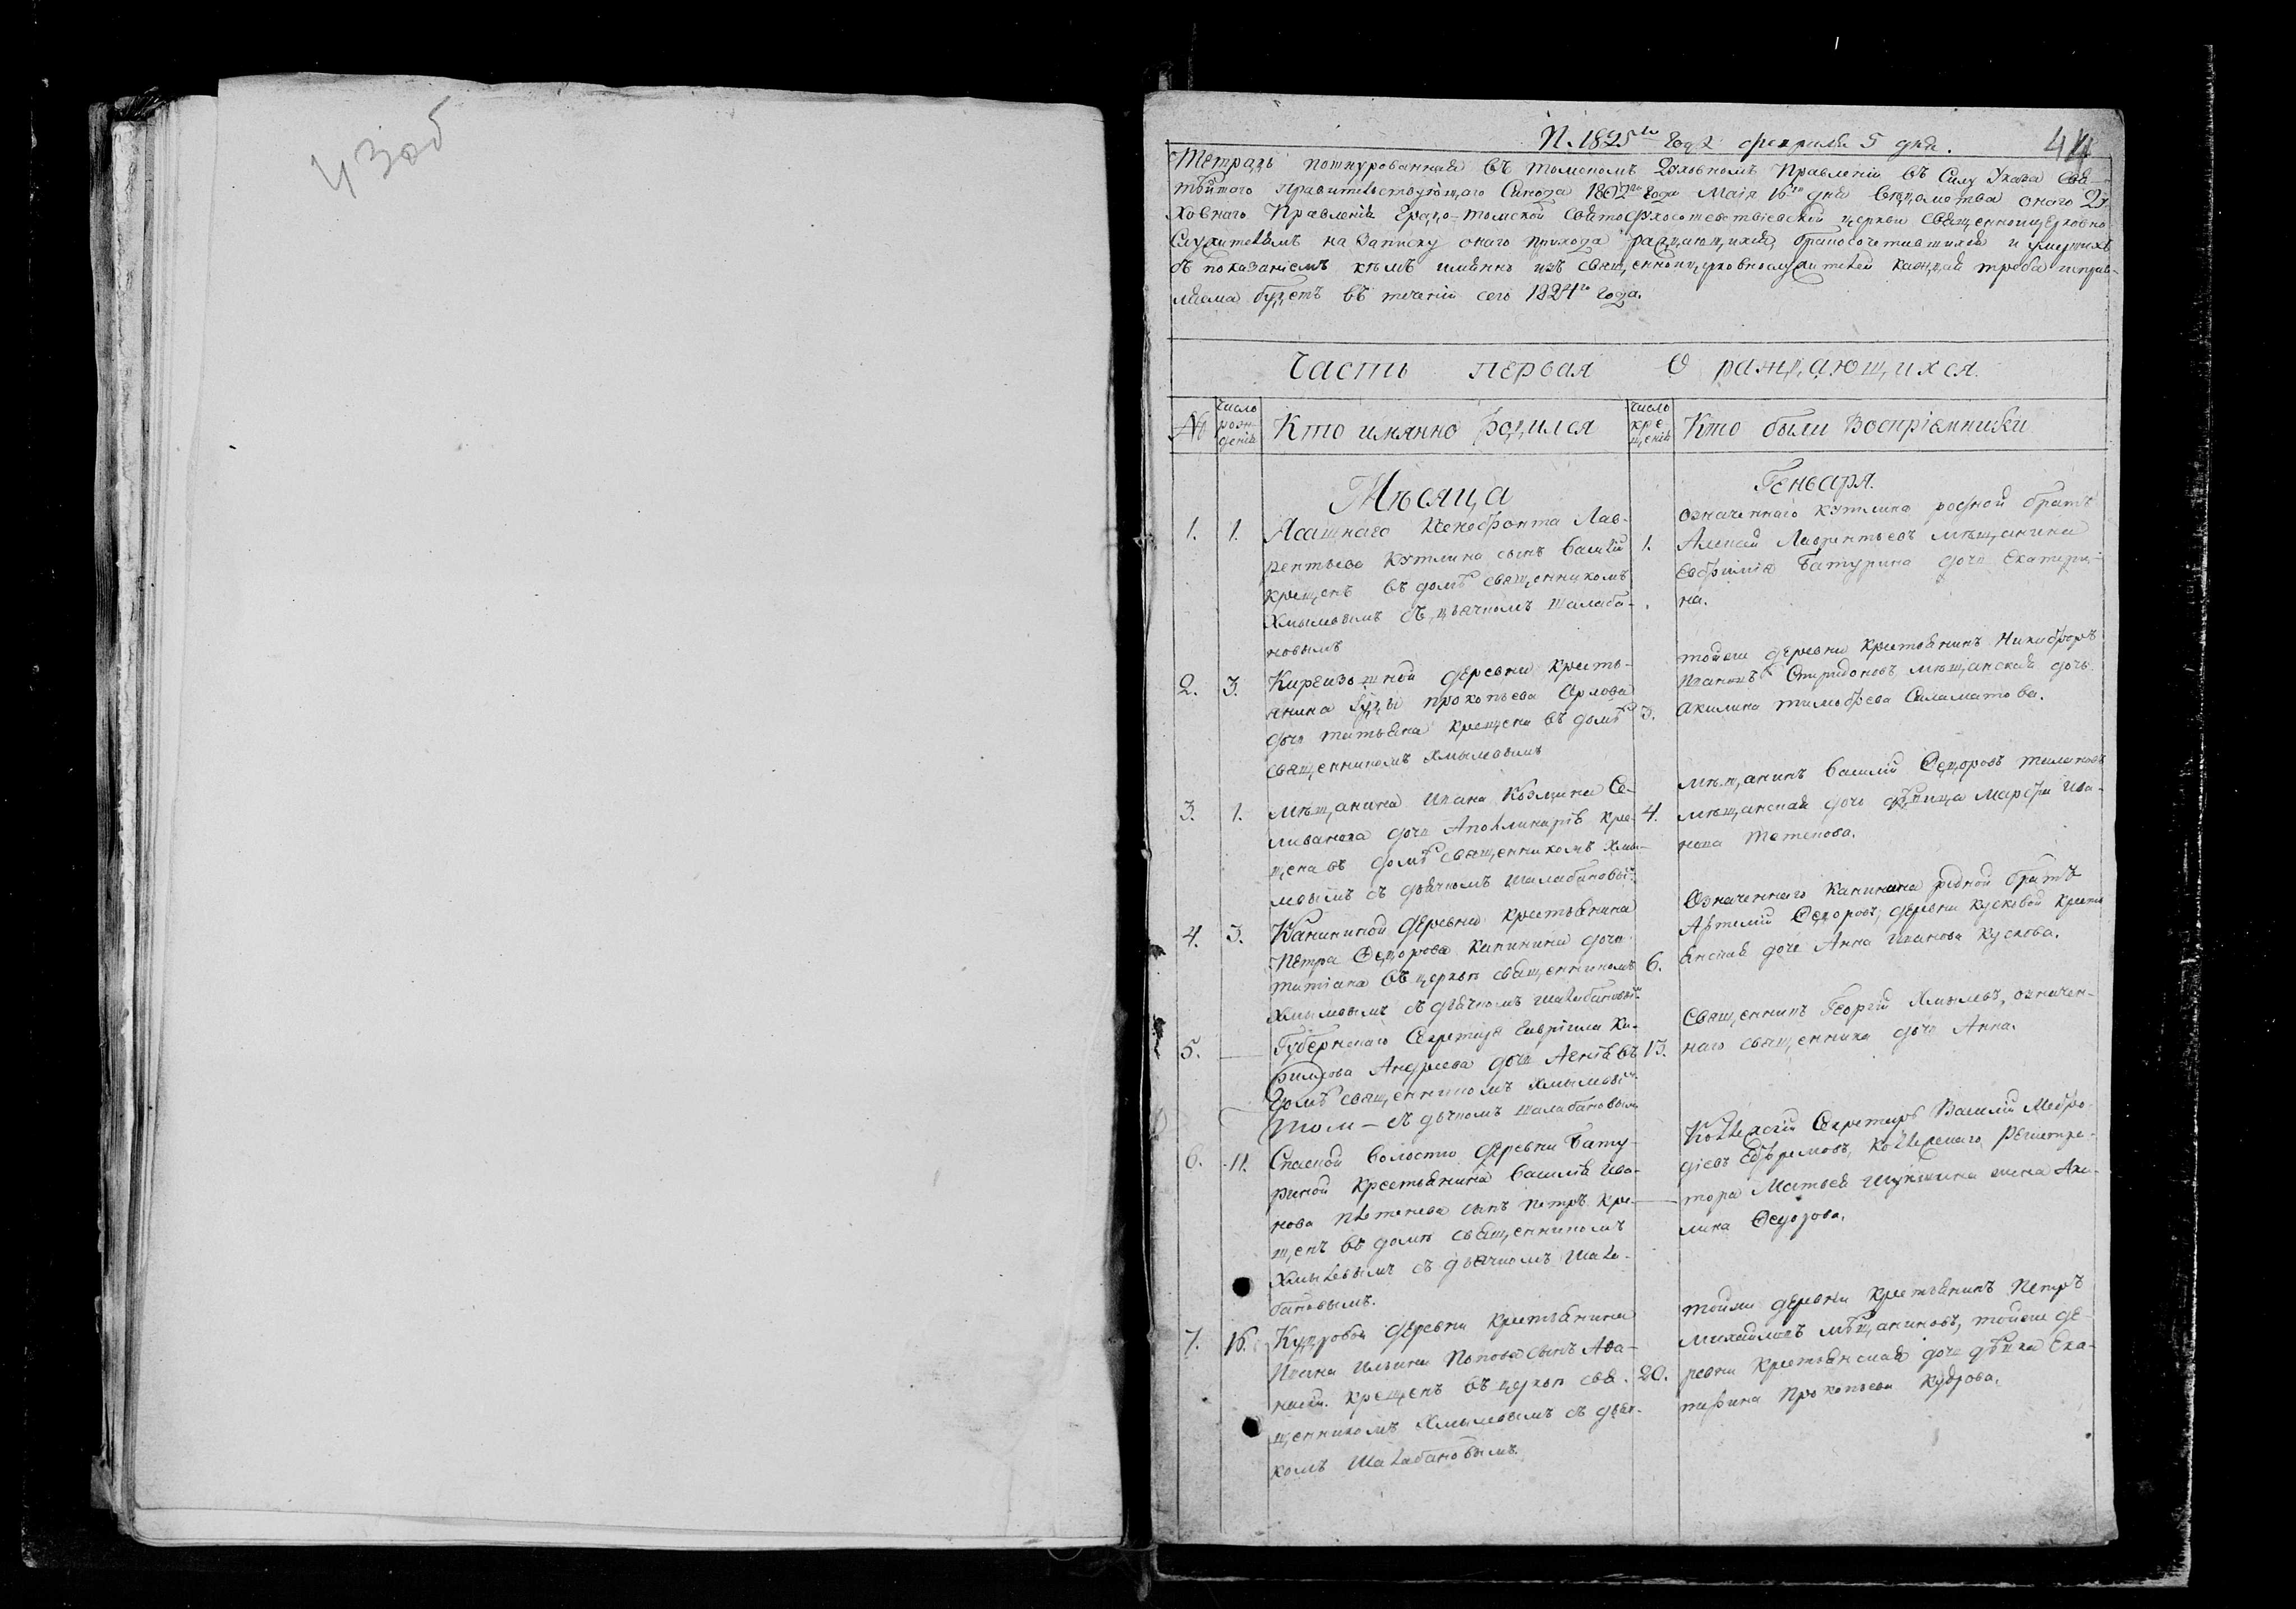 43 об
П. 1825го года февраля 5 дня.
44
Тетрадь пошнурованная въ томскомъ Духовномъ Правленіи въ Силу Указа Свя-
тѣйшаго Правительствующаго Синода 1802го Года Маія 16го дня вѣдомства онаго Ду-
ховнаго Правленія Градо-томской Свято церкви Священноцерковно-
Служителямъ на Записку онаго прихода раждающихся, бракосочетавшихся и умершихъ
съ показаніемъ кѣмъ имянно изъ священноцерковнослужителей каждая треба исправ-
ляема будетъ въ теченіи сего 1824го года.
Часть первая О раждающихся.
№
число рож-
денія
Кто имянно родился
число
кре
щенія
Кто были Воспріемники
Мѣсяца
Генваря.
1. 1. Ясашнаго Ксенофонта Лав-
рентьева Кутлина сынъ Василій
крещенъ въ домѣ священникомъ
Хмылевымъ съ дьячкомъ Шалаба-
новымъ
1. означеннаго Кутлина родной братъ
Алексій Лаврентьевъ мѣщанина
Евфимія Батурина дочь Екатери-
на.
2. 3. деревни кресть-
янина прокопьева Орлова
дочь татьяна крещена въ домѣ
священникомъ Хмылевымъ
3. тойже деревни крестьянинъ Никифоръ
Спиридоновъ мѣщанская дочь
акилина тимофеева Саламатова.
3. 1. мѣщанина Ивана Козмина Се-
ливанова дочь Аполлинарія кре-
щена въ домѣ священникомъ Хмы-
левымъ съ дьячкомъ Шалабановым
4. мѣщанинъ василій Ѳедоровъ
мѣщанская дочь дѣвица Марфа Ива-
нова тетенова.
4. 3. Канининой деревни крестьянина
Петра Ѳедорова Канинина дочь
татіана въ церкви священникомъ
Хмылевымъ съ дьячкомъ шалабановым
6. Означеннаго Канинина родной братъ
Артемій Ѳедоровъ, деревни кусковой кресть
янская дочь Анна Иванова Кускова.
5. — Губернскаго Секретаря Гавріила Ки-
рилова Андреева дочь Агнія въ
домѣ священникомъ Хмылевым
том — съ дьячкомъ шалабановым
13. Священникъ Георгій Хмылевъ, означен-
наго священника дочь Анна.
6. 11. Спаской волости деревни Бату-
риной крестьянина василія Ива-
нова Плетенева сынъ петръ кре-
щенъ въ домѣ священникомъ
Хмылевымъ съ дьячкомъ Шала-
бановымъ.
— Коллежскій Секретарь Василій Мефо-
діевъ Ефремовъ, Коллежскаго Регистра-
тора Матвея жена Аки-
лина Ѳедорова.
7. 16. Кудровой деревни крестьянина
Ивана Ильина Попова сынъ Аѳа-
насій. крещенъ въ церкви свя-
щенникомъ Хмылевымъ съ дьяч-
комъ Шалабановымъ.
20. тойже деревни крестьянинъ Петръ
михайловъ мѣщаниновъ, тойже де-
ревни крестьянская дочь дѣвка Ека-
терина Прокопьева Кудрова.